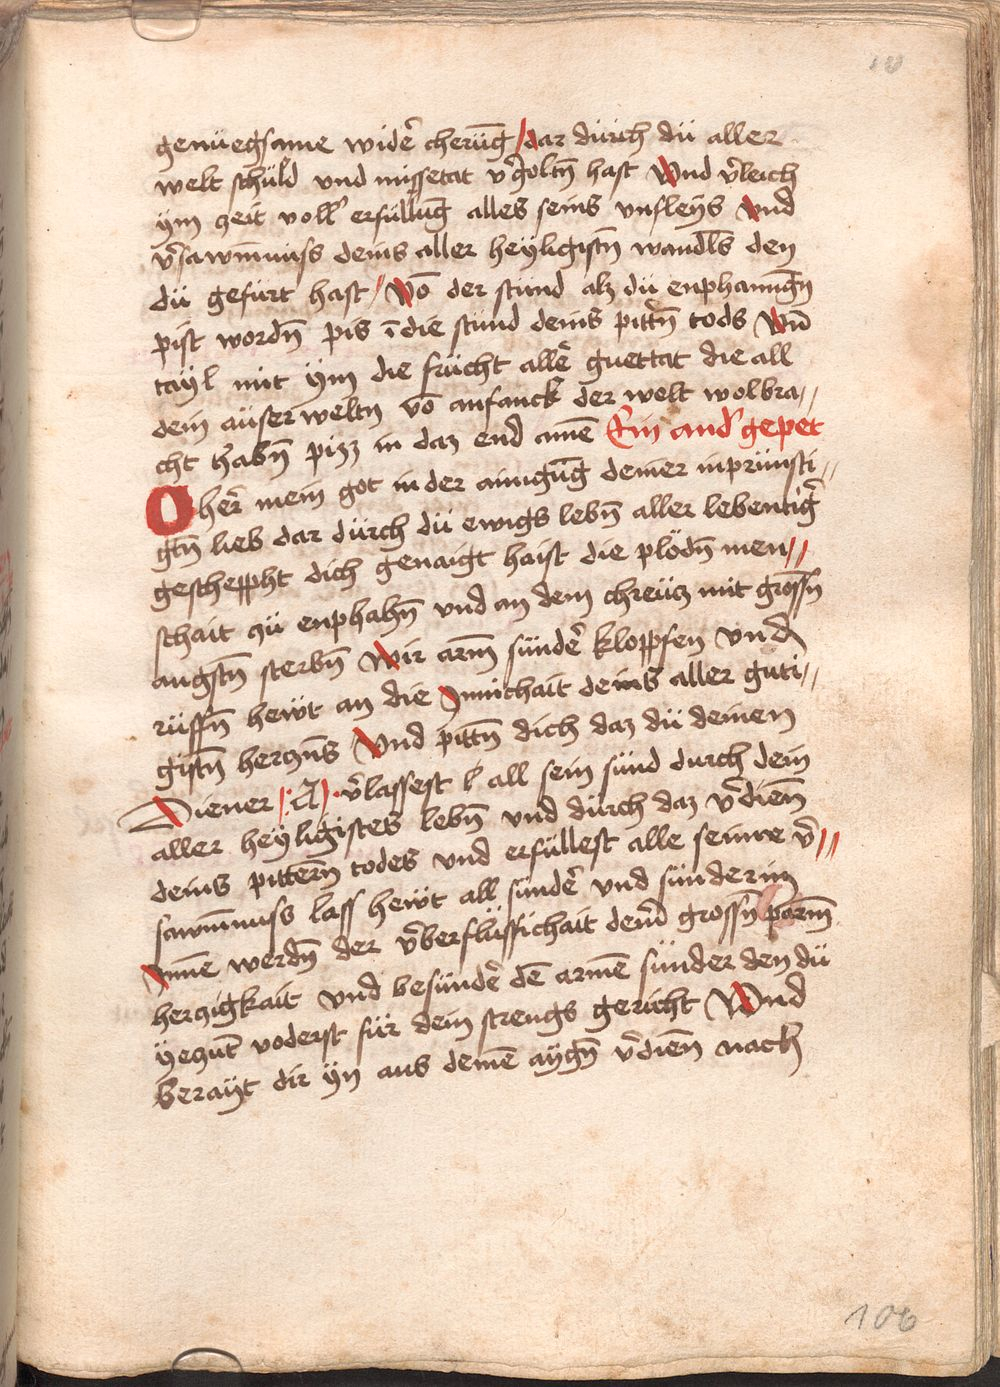 genüegsame widẽ cherũg / dar dürch dü aller
welt schüld vnd missetat v̾goltñ hast Vnd v̾leich
ym zeit voll̾ erfüllũg alles seins vnfleÿs vnd
v̾sawm̄nuss deins aller heÿligistñ wandl̾s den
dü gefürt hast / Võ der stund alz dü enphanngñ
pist wordñ pis ĩ die stund deins pittñ tods Vñ
taÿl mit ÿm die frücht allẽ guettat die all
dein aüserweltn võ anfanck der welt wolbra//
cht habñ pizz in daz end amẽ Ein and̾ gepet
O her̾ mein got in der ainigũg deiner inprünsti//
gtñ lieb dar dürch dü ewigs lebñ aller lebentig̾
gescheppht dich genaigt haist die plödñ men//
schait zü enphahñ vnd an dem chreücz mit grossñ
angstñ sterbñ Wir arm̄ sündẽ kloppfen vnd
rüffñ hewt an die ynnichait deins aller guti//
gistñ herczñs Vnd pittñ dich daz dü deinen
Diener /: N :/ v̾lassest l all sein sünd durch dein
aller heÿligistes lebñ vnd dürch daz v̾dienñ
deins pitterñ todes vnd erfüllest alle seinne v̾//
sawm̄nuss lass hewt all sündẽ vnd sünderin
ynnẽ werdñ der v̾berflüssichait dein̾ grossñ parm̄
herczigkait vnd besündẽ dẽ armẽ sünder den dü
ÿeczũt voderst für dein strengs gericht Vnd
berayt dir ÿn aus deinẽ aÿgñ v̾dienñ nach
106